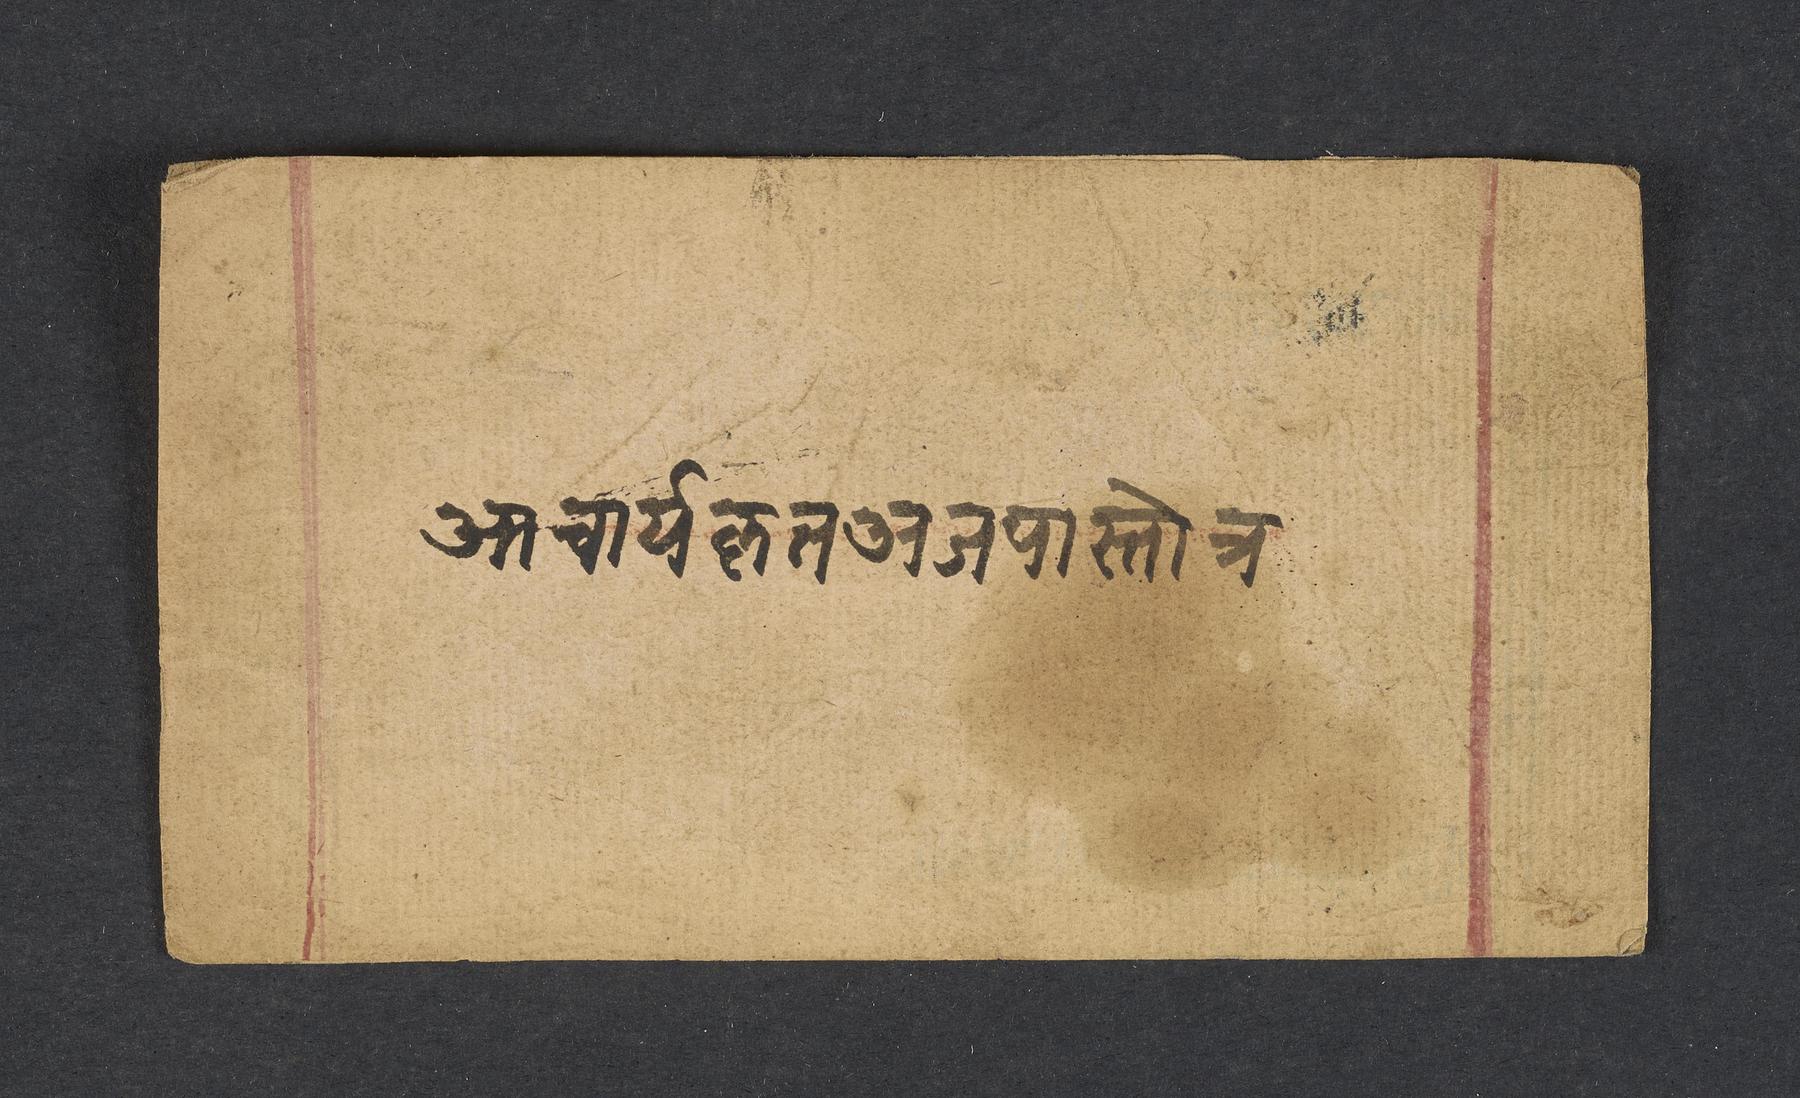 आचार्यकृतअजपास्तोत्र